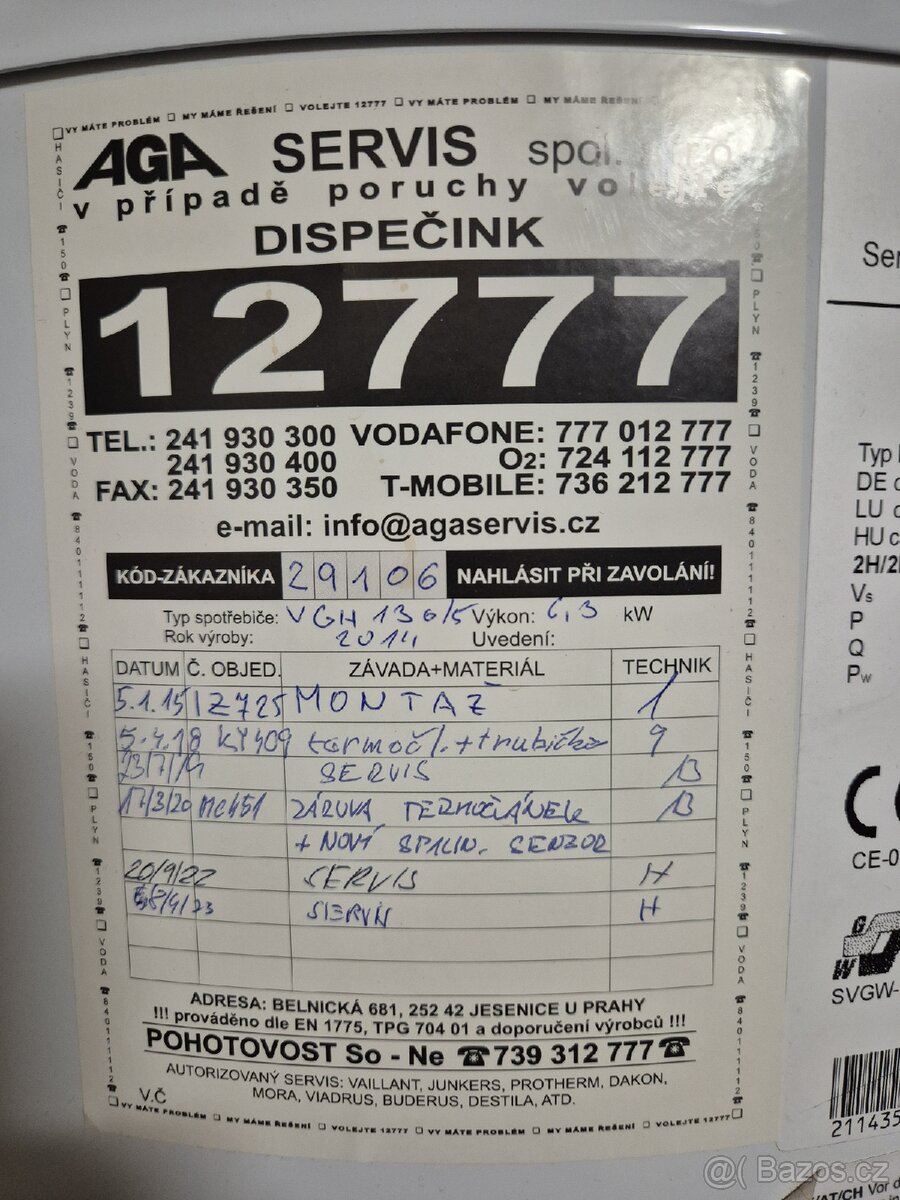 VY MÁTE PROBLÉM ☐ MY MÁME ŘEŠENÍ ☐ VOLEJTE 12777 ☐ VY MÁTE PROBLÉM ☐ MY MÁME ŘEŠENÍ
AGA SERVIS spol.
v případě poruchy volejte
DISPEČINK
12777
TEL.: 241 930 300 VODAFONE: 777 012 777
241 930 400 O2: 724 112 777
FAX: 241 930 350 T-MOBILE: 736 212 777
e-mail: info@agaservis.cz
KÓD-ZÁKAZNÍKA 29106 NAHLÁSIT PŘI ZAVOLÁNÍ!
Typ spotřebiče: VGH 130/5 Výkon: 6,3 kW
Rok výroby: 2014 Uvedení:
DATUM Č. OBJED. ZÁVADA+MATERIÁL TECHNIK
5.1.15 IZ725 MONTAŽ 1
5.4.18 KY409 termočl. + trubička 9
23/7/19 SERVIS 13
17/3/20 MC451 ZÁRUVA TERMOČLÁNEK 13
+ NOVÝ SPALIN. SENZOR
20/9/22 SERVIS H
SERVIS H
ADRESA: BELNICKÁ 681, 252 42 JESENICE U PRAHY
!!! prováděno dle EN 1775, TPG 704 01 a doporučení výrobců !!!
POHOTOVOST So - Ne ☎739 312 777☎
AUTORIZOVANÝ SERVIS: VAILLANT, JUNKERS, PROTHERM, DAKON,
MORA, VIADRUS, BUDERUS, DESTILA, ATD.
V.Č
VY MÁTE PROBLÉM ☐ MY MÁME ŘEŠENÍ ☐ VOLEJTE 12777 ☐ VY MÁTE PROBLÉM ☐ MY MÁME ŘEŠENÍ ☐ VOLEJTE 12777
HASIČI ☎150☎ ☐ PLYN ☎1239☎ ☐ VODA ☎840111112☎ ☐ HASIČI ☎150☎ ☐ PLYN ☎1239☎ ☐ VODA ☎840111112☎
PLYN ☎1239☎ ☐ VODA ☎840111112☎ ☐ HASIČI ☎150☎ ☐ PLYN ☎1239☎ ☐ VODA ☎840111112☎
Ser
Typ
DE
LU
HU
2H/2
Vs
P
Q
Pw
CE-0
G
W
SVGW-
211435
AT/CH Vor d
@( Bazos.cz